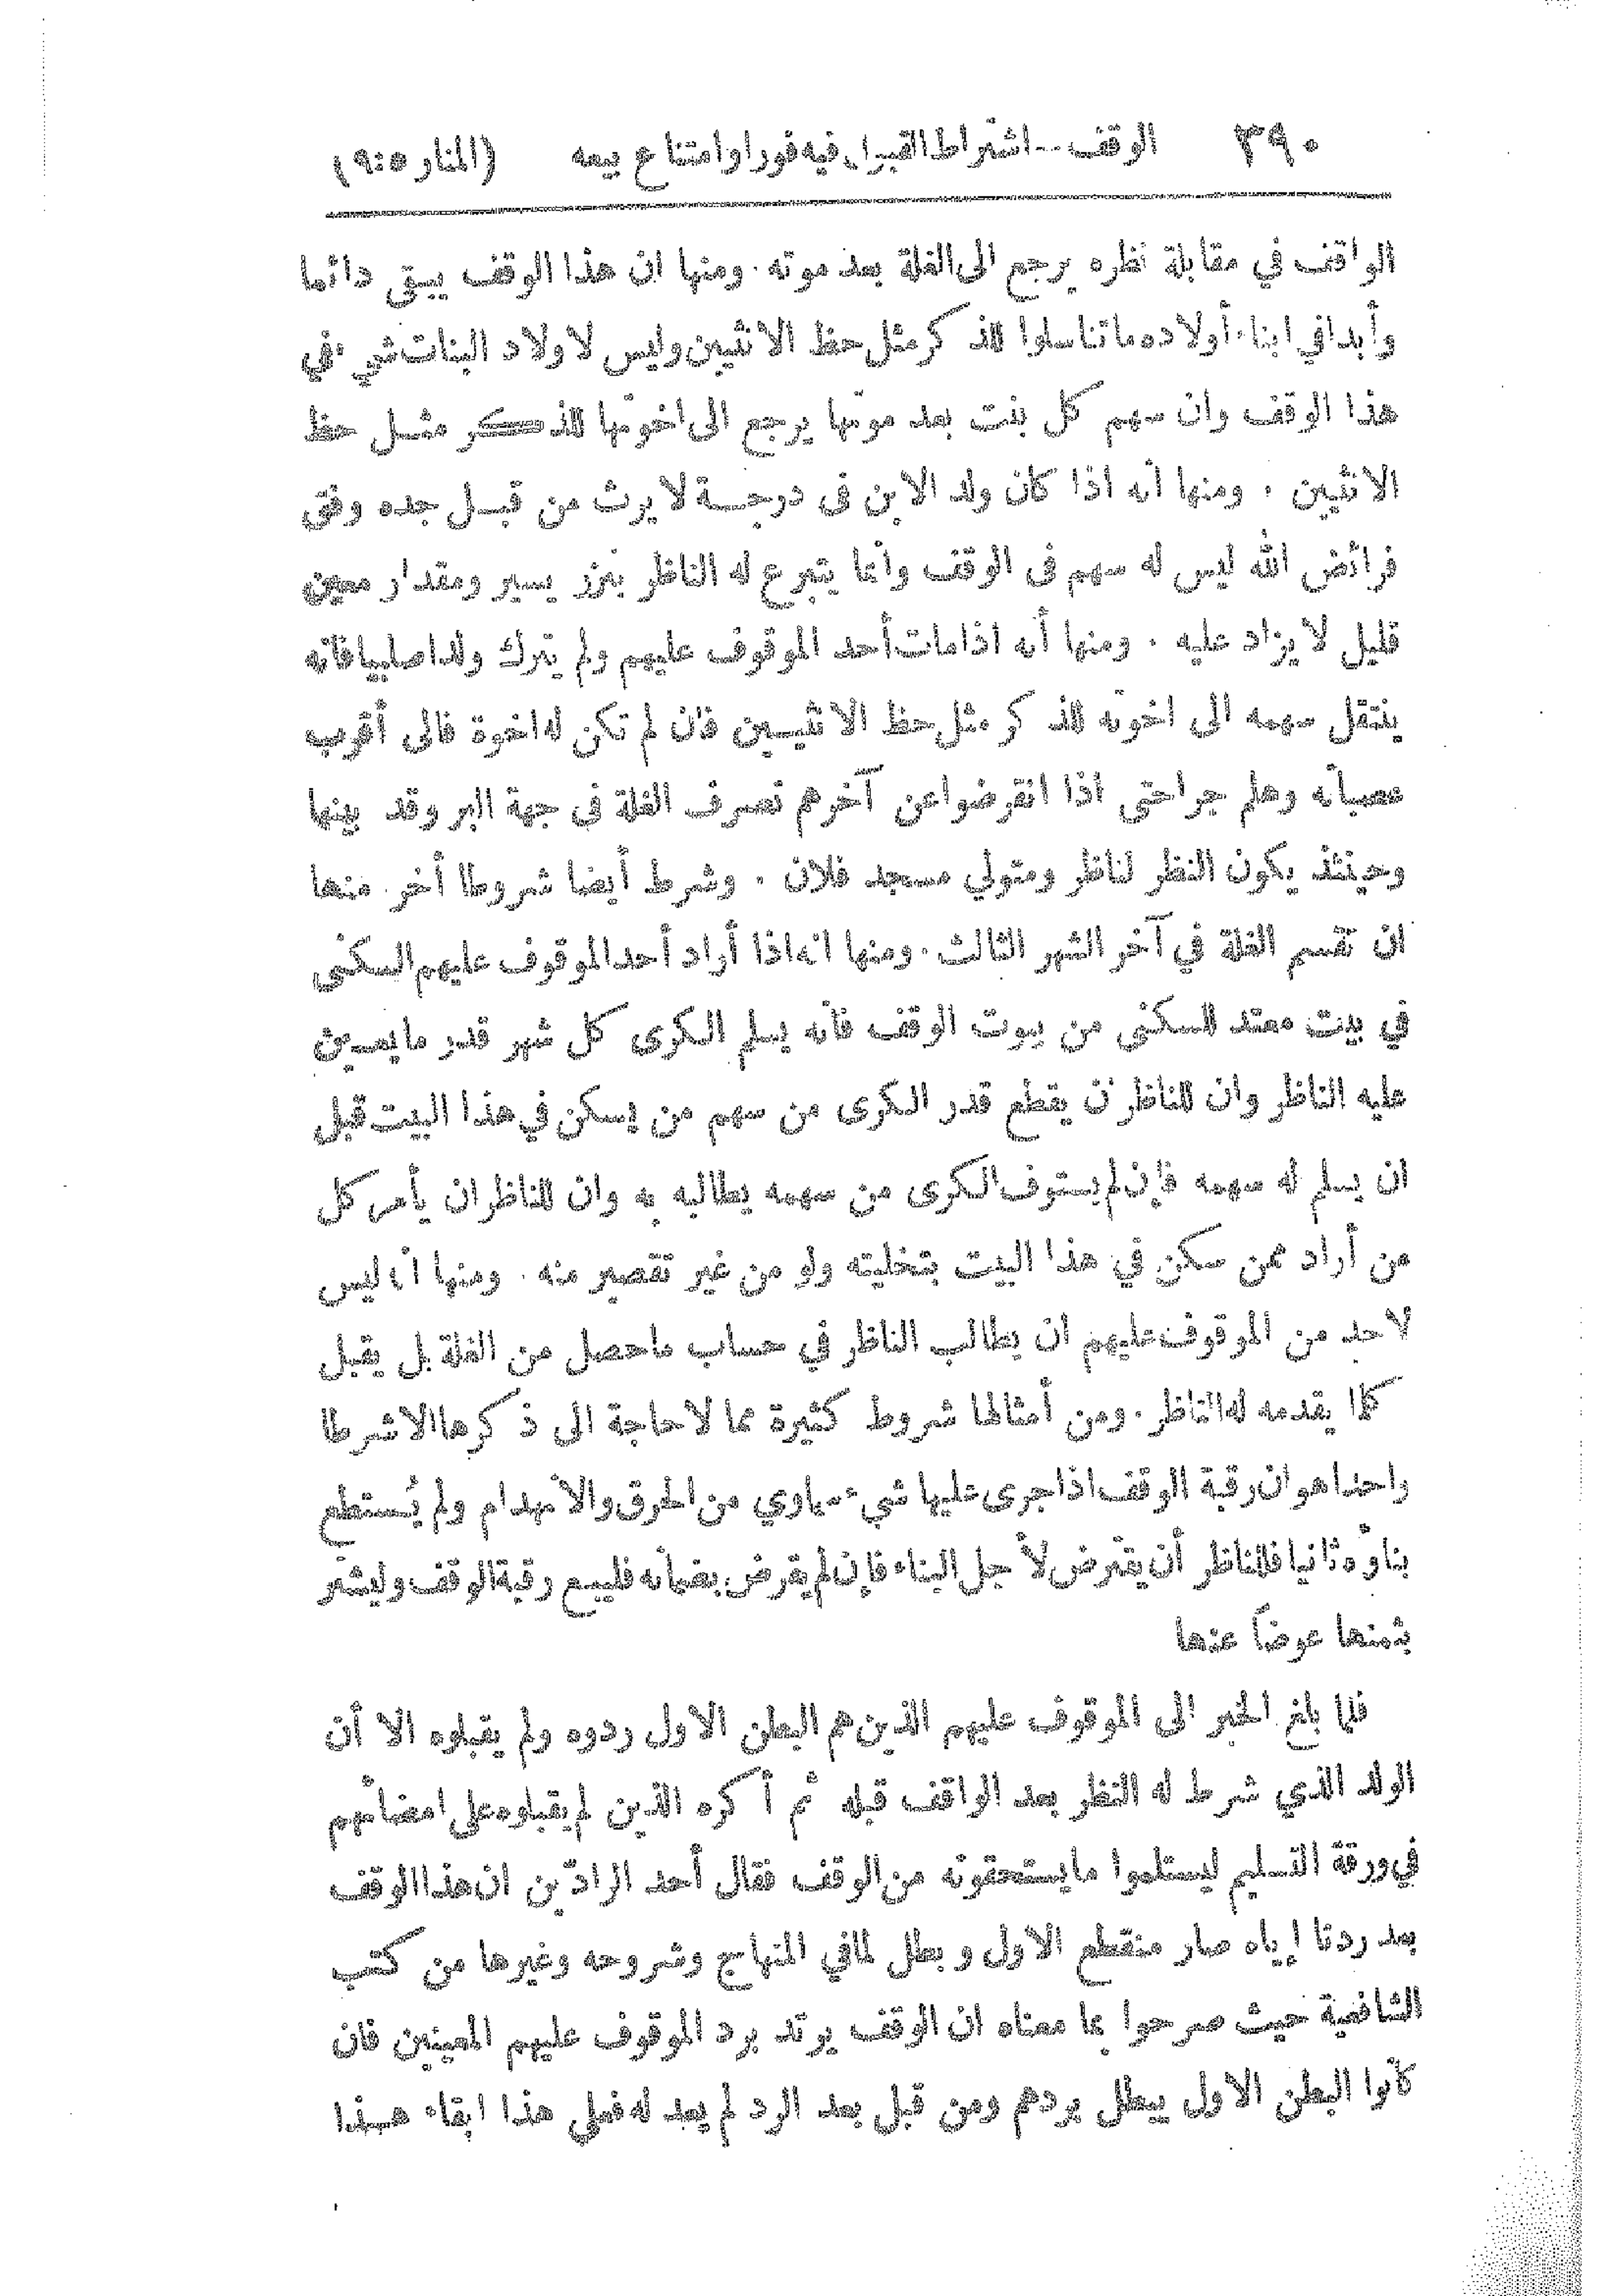 ٣٩٠ الوقف--اشتراط القبول فيه فورا وامتناع بيعه (المنار ٥:٩)
الواقف في مقابلة نظره يرجع الى الغلة بعد موته. ومنها ان هذا الوقف يبقى دائما
وأبدا في ابناء أولاده ما تناسلوا للذكر مثل حظ الانثيين وليس لاولاد البنات شيء في
هذا الوقف وان سهم كل بنت بعد موتها يرجع الى اخوتها للذكر مثل حظ
الانثيين . ومنها أنه اذا كان ولد الابن فى درجة لا يرث من قبل جده وفق
فرائض الله ليس له سهم فى الوقف وانما يتبرع له الناظر بنزر يسير ومقدار معين
قليل لا يزاد عليه . ومنها أنه اذا مات أحد الموقوف عليهم ولم يترك ولدا صلبيا فانه
ينتقل سهمه الى اخوته للذكر مثل حظ الانثيين فان لم تكن له اخوة فالى أقرب
عصباته وهلم جرا حتى اذا انقرضوا عن آخرهم تصرف الغلة فى جهة البر وقد بينها
وحينئذ يكون النظر لناظر ومتولي مسجد فلان . وشرط أيضا شروطا أخر منها
ان تقسم الغلة في آخر الشهر الثالث. ومنها انه اذا أراد أحد الموقوف عليهم السكنى
في بيت معتد للسكنى من بيوت الوقف فانه يسلم الكرى كل شهر قدر ما يعين
عليه الناظر وان للناظر ن يقطع قدر الكرى من سهم من يسكن في هذا البيت قبل
ان يسلم له سهمه فإن لم يستوف الكرى من سهمه يطالبه به وان للناظر ان يأمر كل
من أراد ممن سكن في هذا البيت بتخليته ولو من غير تقصير منه . ومنها انه ليس
لاحد من الموقوف عليهم ان يطالب الناظر في حساب ما حصل من الغلة بل يقبل
كلما يقدمه له الناظر. ومن أمثالها شروط كثيرة مما لا حاجة الى ذكرها الا شرطا
واحدا هو ان رقبة الوقف اذا جرى عليها شيء سماوي من الحرق والانهدام ولم يُستطع
بناؤه ثانيا فللناظر أن يقترض لأجل البناء فإن لم يقرض بضمانه فليبع رقبة الوقف وليشتر
بثمنها عوضاً عنها
فلما بلغ الخبر الى الموقوف عليهم الذين هم البطن الاول ردوه ولم يقبلوه الا أن
الولد الذي شرط له النظر بعد الواقف قبله ثم أكره الذين لم يقبلوه على امضائهم
في ورقة التسليم ليستلموا ما يستحقونه من الوقف فقال أحد الرادّين ان هذا الوقف
بعد ردنا إياه صار منقطع الاول وبطل لما في المنهاج وشروحه وغيرها من كتب
الشافعية حيث صرحوا بما معناه ان الوقف يرتد برد الموقوف عليهم المعينين فان
كانوا البطن الاول يبطل بردهم ومن قبل بعد الرد لم يعد له فعلى هذا ابقاء هذا